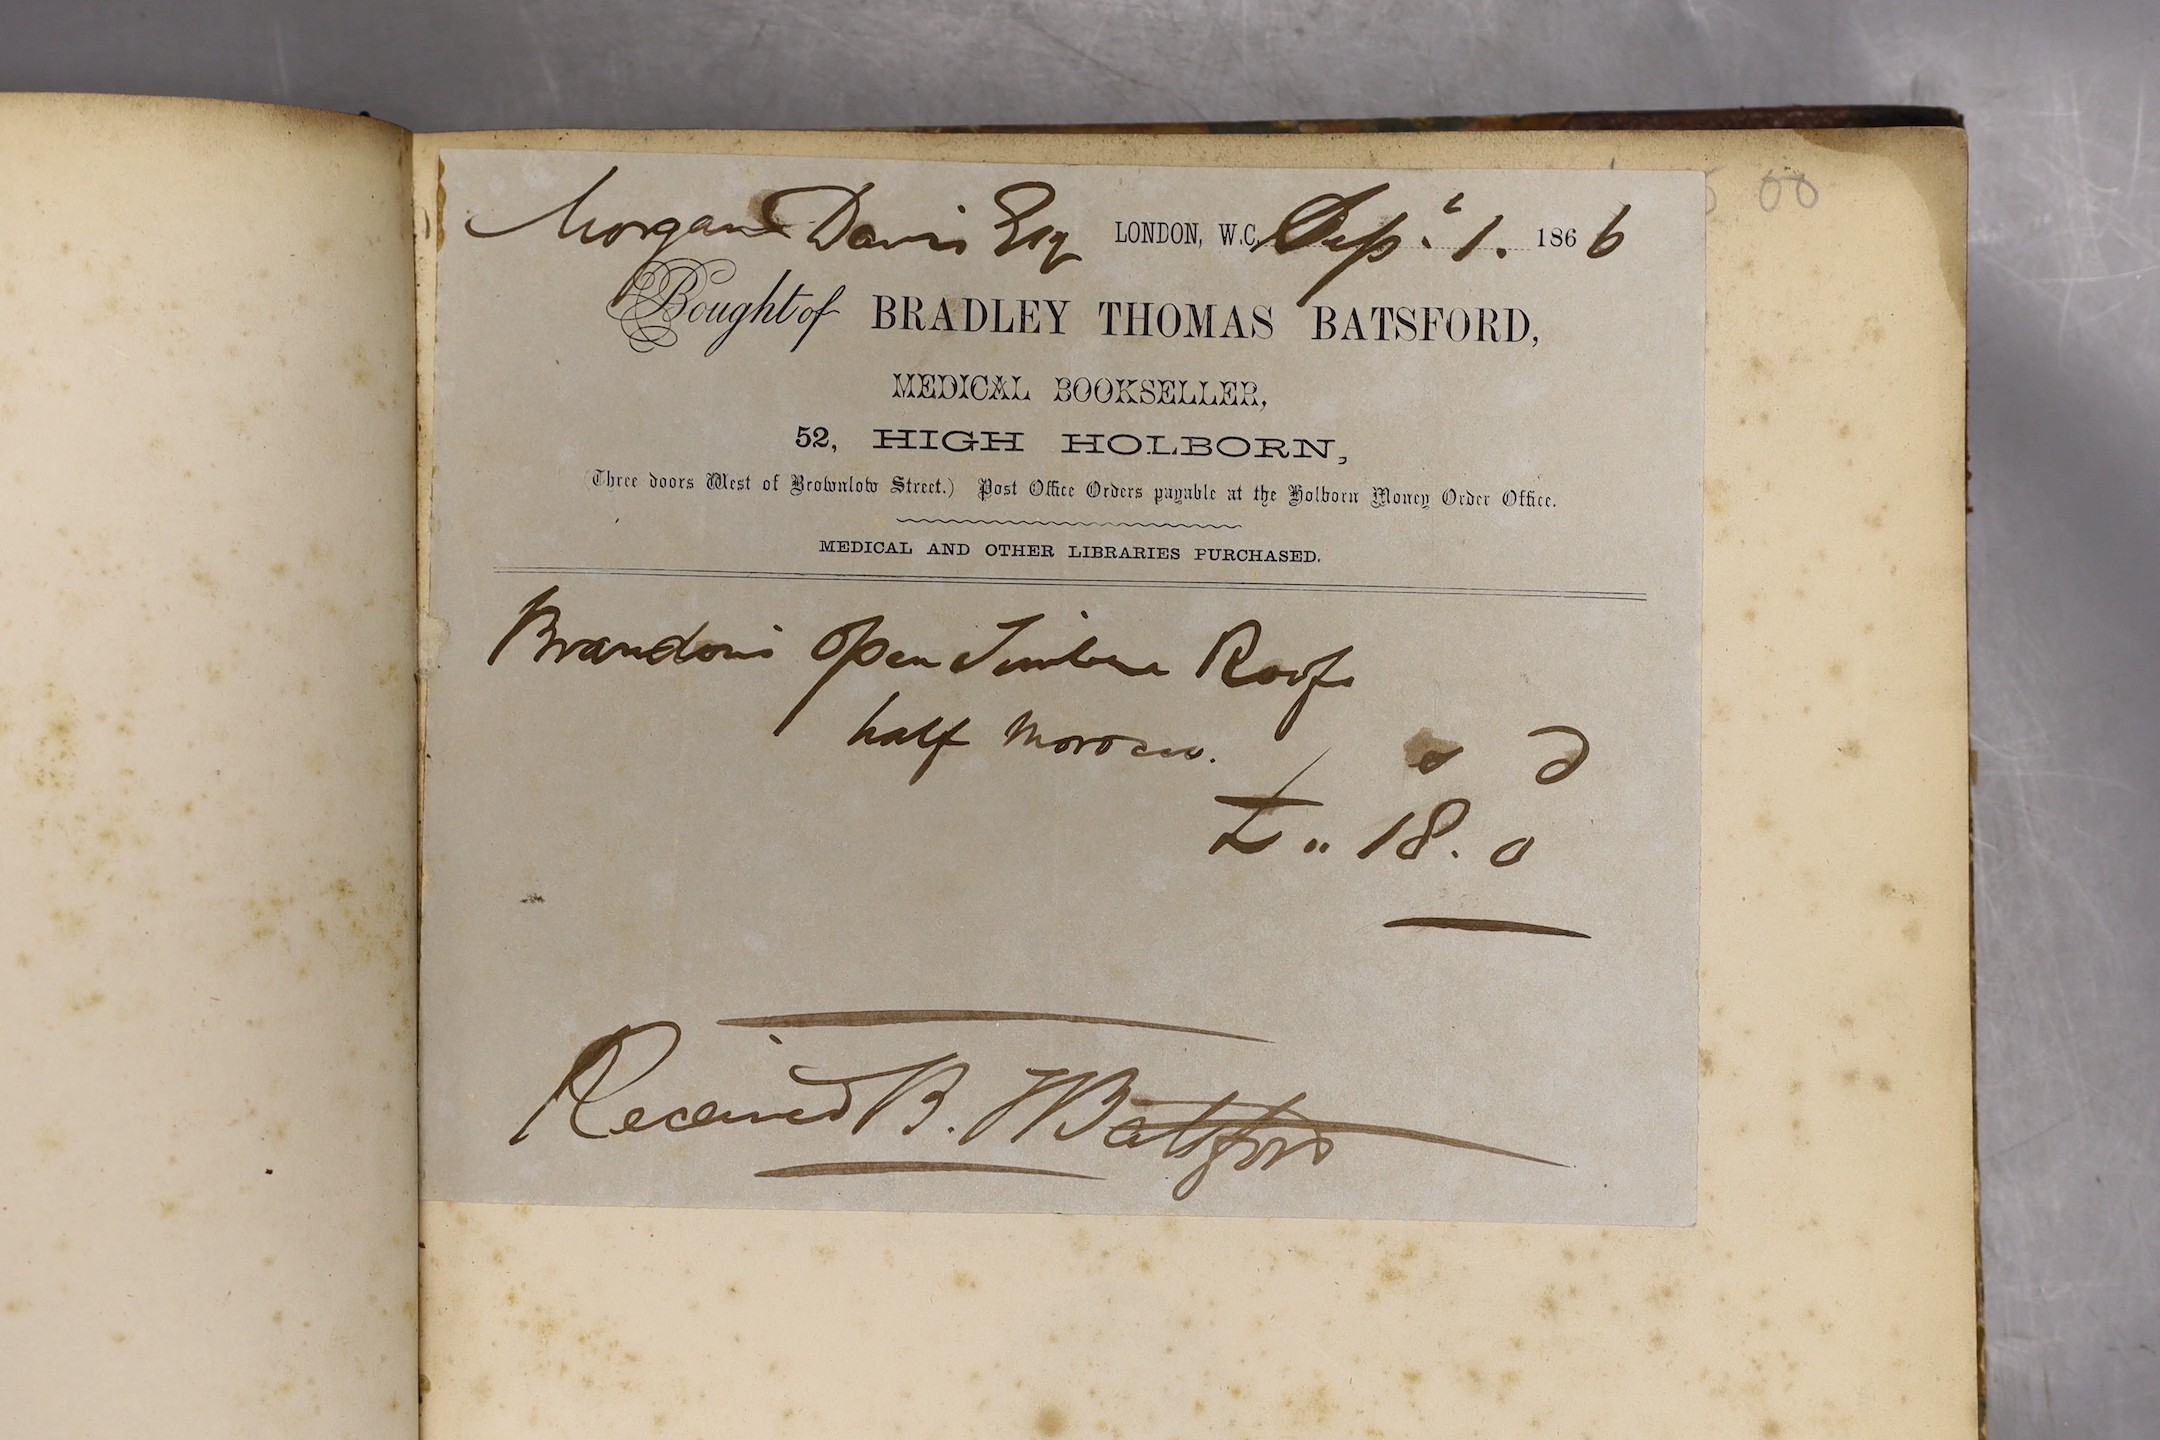 Morgan Davis Esq LONDON, W.C. Sepr 1. 1866
Bought of BRADLEY THOMAS BATSFORD,
MEDICAL BOOKSELLER,
52, HIGH HOLBORN,
(Three doors West of Brownlow Street.) Post Office Orders payable at the Holborn Money Order Office.
MEDICAL AND OTHER LIBRARIES PURCHASED.
Brandon's Open Timber Roofs
half Morocco.
s d
£ " 18. 0
Received B. T Batsford